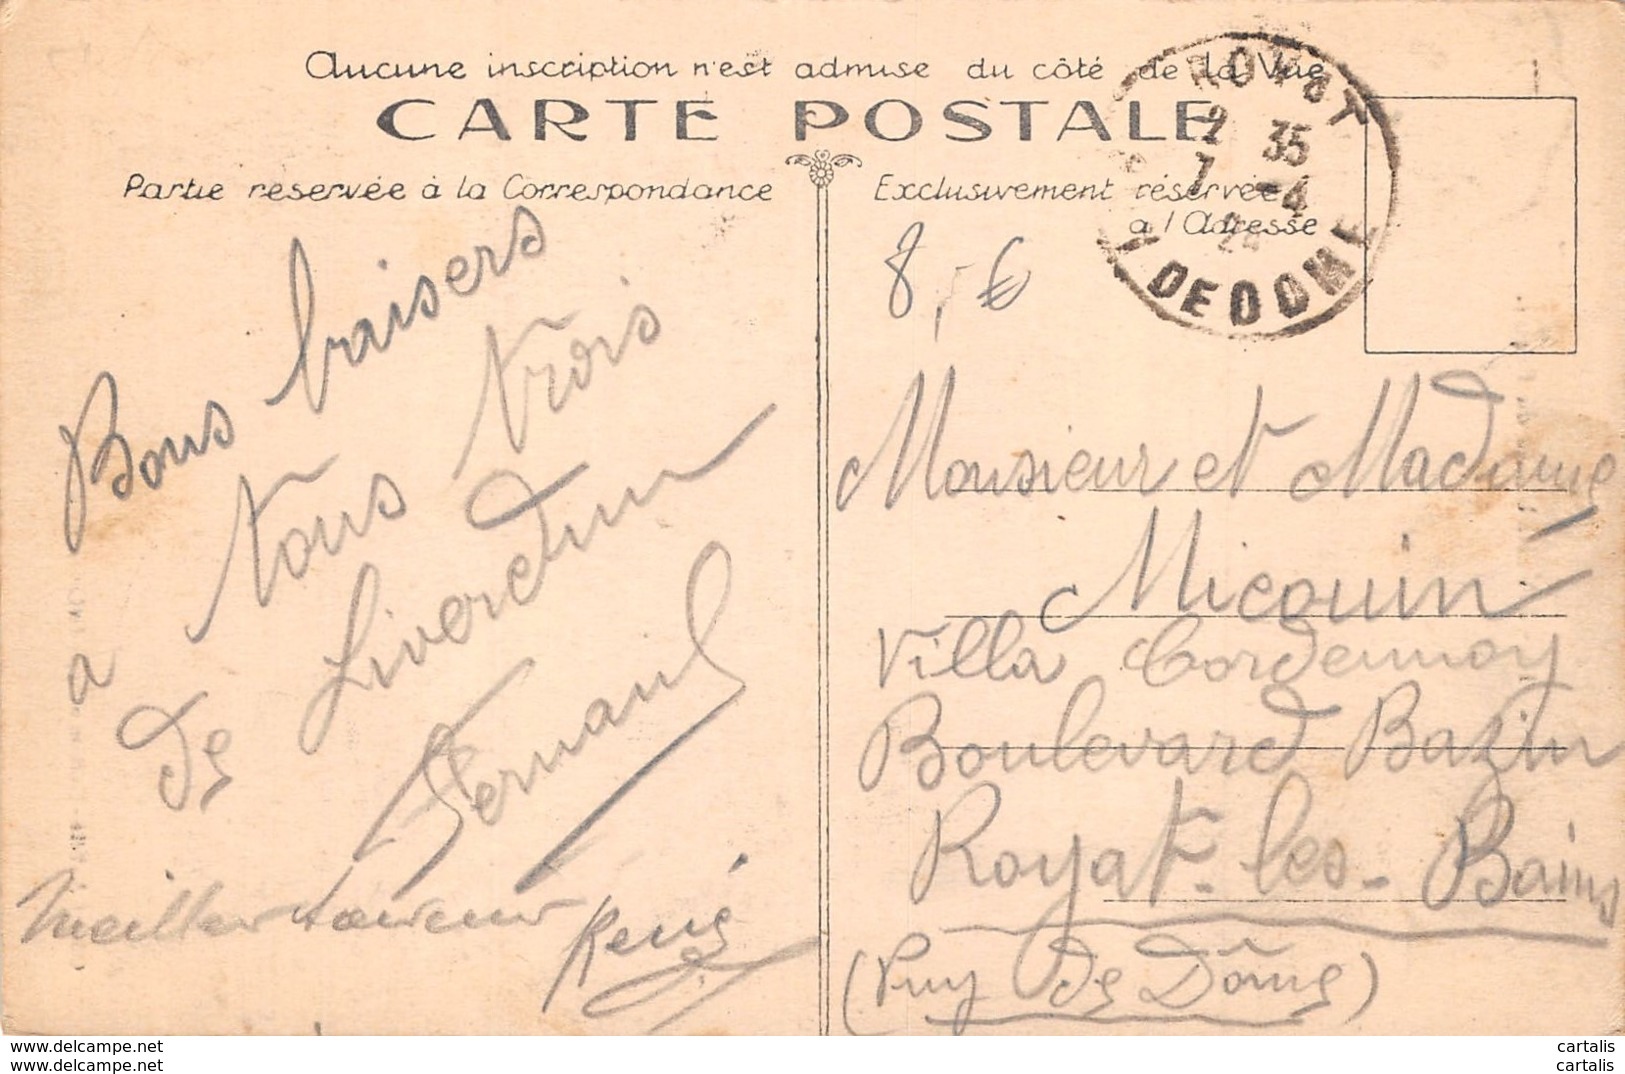 Aucune inscription n'est admise du côté de la Vue
CARTE POSTALE
Partie réservée à la Correspondance
Exclusivement réservée
à l'Adresse
ROYAT
2 35
7 -4
24
Y DE DOME
8,-€
Bons baisers
a vous trois
de Liverdun
Fernand
Meilleur
René
Monsieur et Madame
Micouin
Villa
Boulevard Bazin
Royat-les-Bains
(Puy de Dôme)
www.delcampe.net
www.delcampe.net
cartalis
cartalis